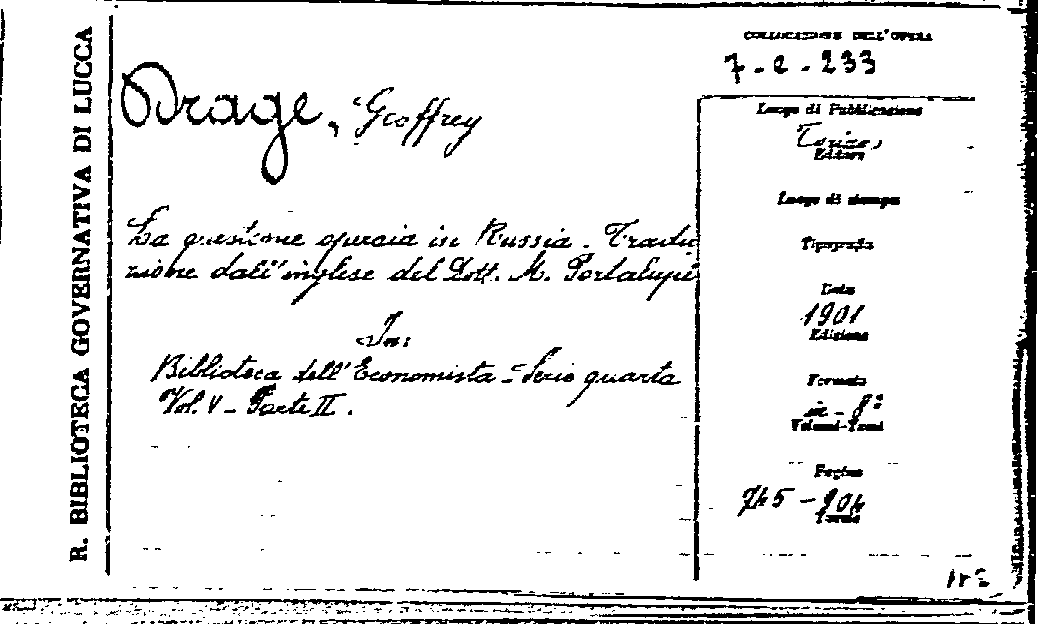 R. BIBLIOTECA GOVERNATIVA DI LUCCA
COLLOCAZIONE DELL'OPERA
7-e-233
Drage, Geoffrey
La questione operaia in Russia - Tradu
zione dall'inglese del Dott. M. Portalupi
In:
Biblioteca dell'Economista - Serie quarta
Vol. V - Parte II.
Luogo di Pubblicazione
Torino,
Editore
Luogo di stampa
Tipografia
Data
1901
Edizione
Formato
in - 8º
Volumi-Tomi
Pagine
745 - 904
Tavole